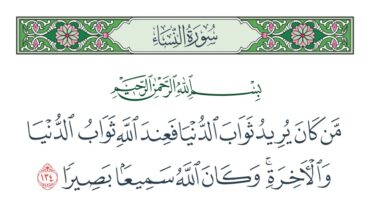 سُورَةُ النِّسَاءِ
بِسْمِ ٱللَّهِ ٱلرَّحْمَٰنِ ٱلرَّحِيمِ
مَّن كَانَ يُرِيدُ ثَوَابَ ٱلدُّنْيَا فَعِندَ ٱللَّهِ ثَوَابُ ٱلدُّنْيَا
وَٱلْأَخِرَةِ ۚ وَكَانَ ٱللَّهُ سَمِيعَۢا بَصِيرٗا ١٣٤